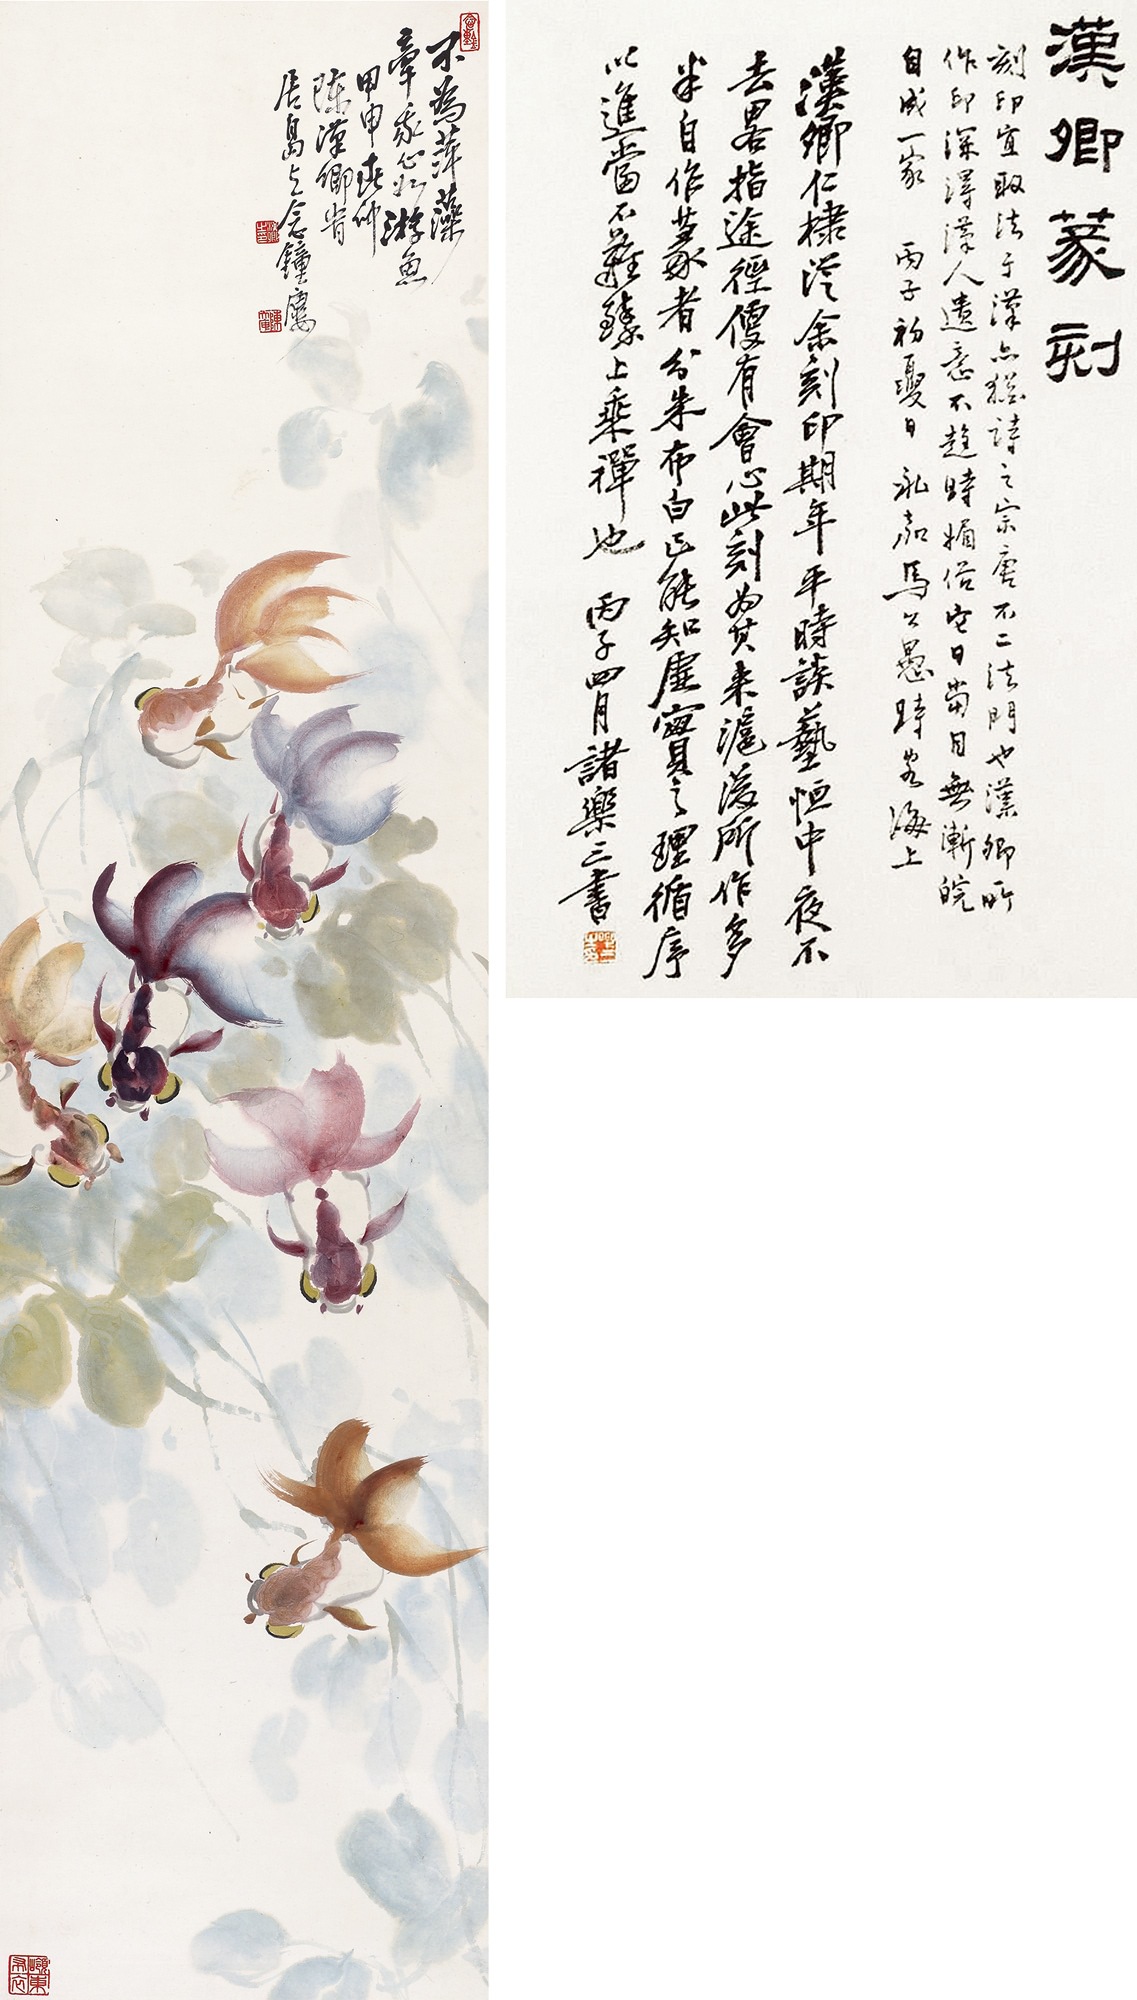 不為萍藻
牽我心如游魚
甲申春仲
陈漢卿肯
居島上念鐘廔
漢卿篆刻
刻印宜取法于漢亦猶詩之宗唐不二法門也漢卿所
作印深得漢人遺意不趨時媚俗它日當目無漸皖
自成一家　丙子初夏日永嘉馬公愚時客海上
漢卿仁棣從余刻印期年平時談藝恒中夜不
去畧指途徑便有會心此刻為其來滬後所作多
半自作篆者分朱布白已能知虛實之理循序
以進當不難臻上乘禪也　丙子四月諸樂三書